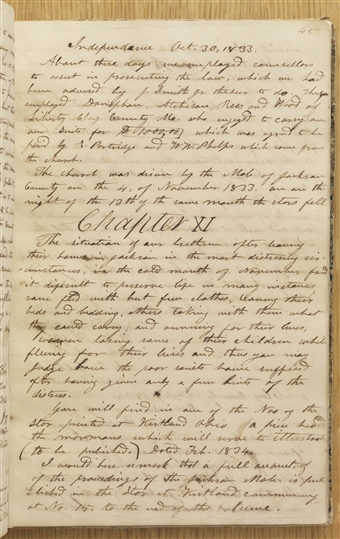 45
Independance Oct. 30, 1833.
About these days we employed councellors
to assist in prosecuting the law, which we had
been advised by J Smith jr thusn to do. They
employed Donaphan, Atchison, Rees and Wood of
Liberty Clay County Mo. who engaged to carry on
our Suits for $1000,00) which was agreed to be
paid by E. Partridge and W. W. Phelps which come from
the church.
The church was driven by the Mob of Jackson
County on the 4, of November 1833. on an the
night of the 13th of the same mounth the stars fell
Chapter XI
The situation of our brethern after leaving
their homes in Jackson in the most distressing cir
cumstances, in the cold mounth of November found
it dificult to preserve life in many instances
some fled with but few clothes, leaving their
beds and bedding, others taking with them what
they could carry, and running for their lives,
women losing some of their children while
fleeing for their lives and thus you may
judge how the poor saints have suffered
after having given only a few hints of the
distress.
You will find in one of the Nos of the
Star printed at Kirtland Ohio a piece head
the mormons which will serve to illustrate
(to be published.) Dated Feb. 1834.
I would here remark that a full account of
of the proceedings of the Jackson Mob. is pub
lished in the Star at Kirtland commencing
at No. 15. to the end of the volume.